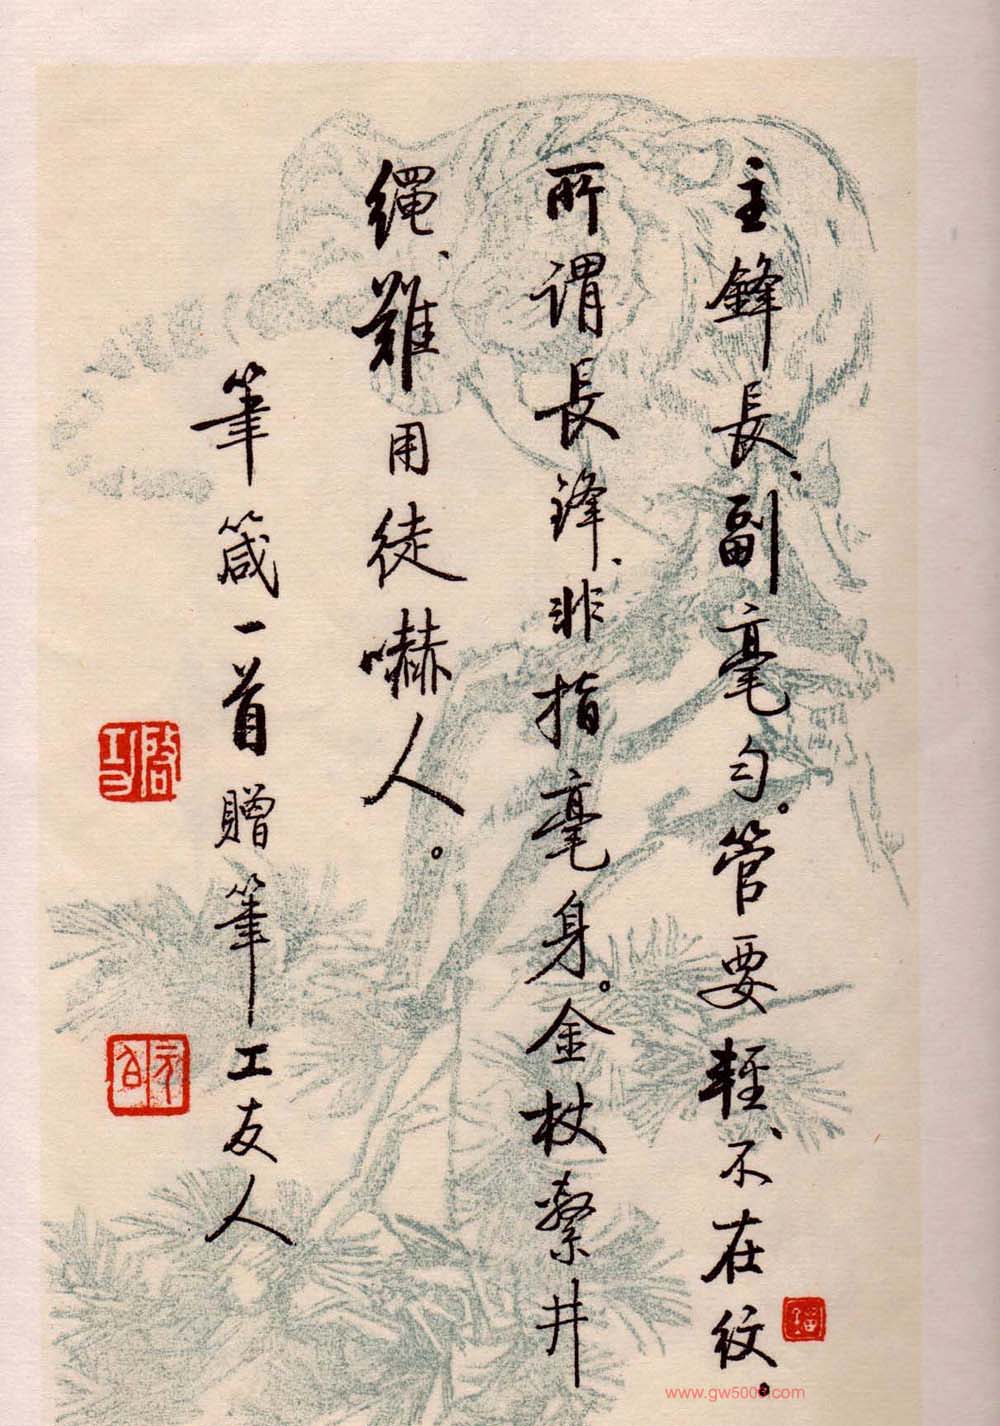 主鋒長、副毫勻。管要輕、不在紋。
所谓長鋒、非指毫身。金杖繫井
绳、難用徒嚇人。
筆箴一首贈筆工友人
啓功
元白
www.gw500
.com